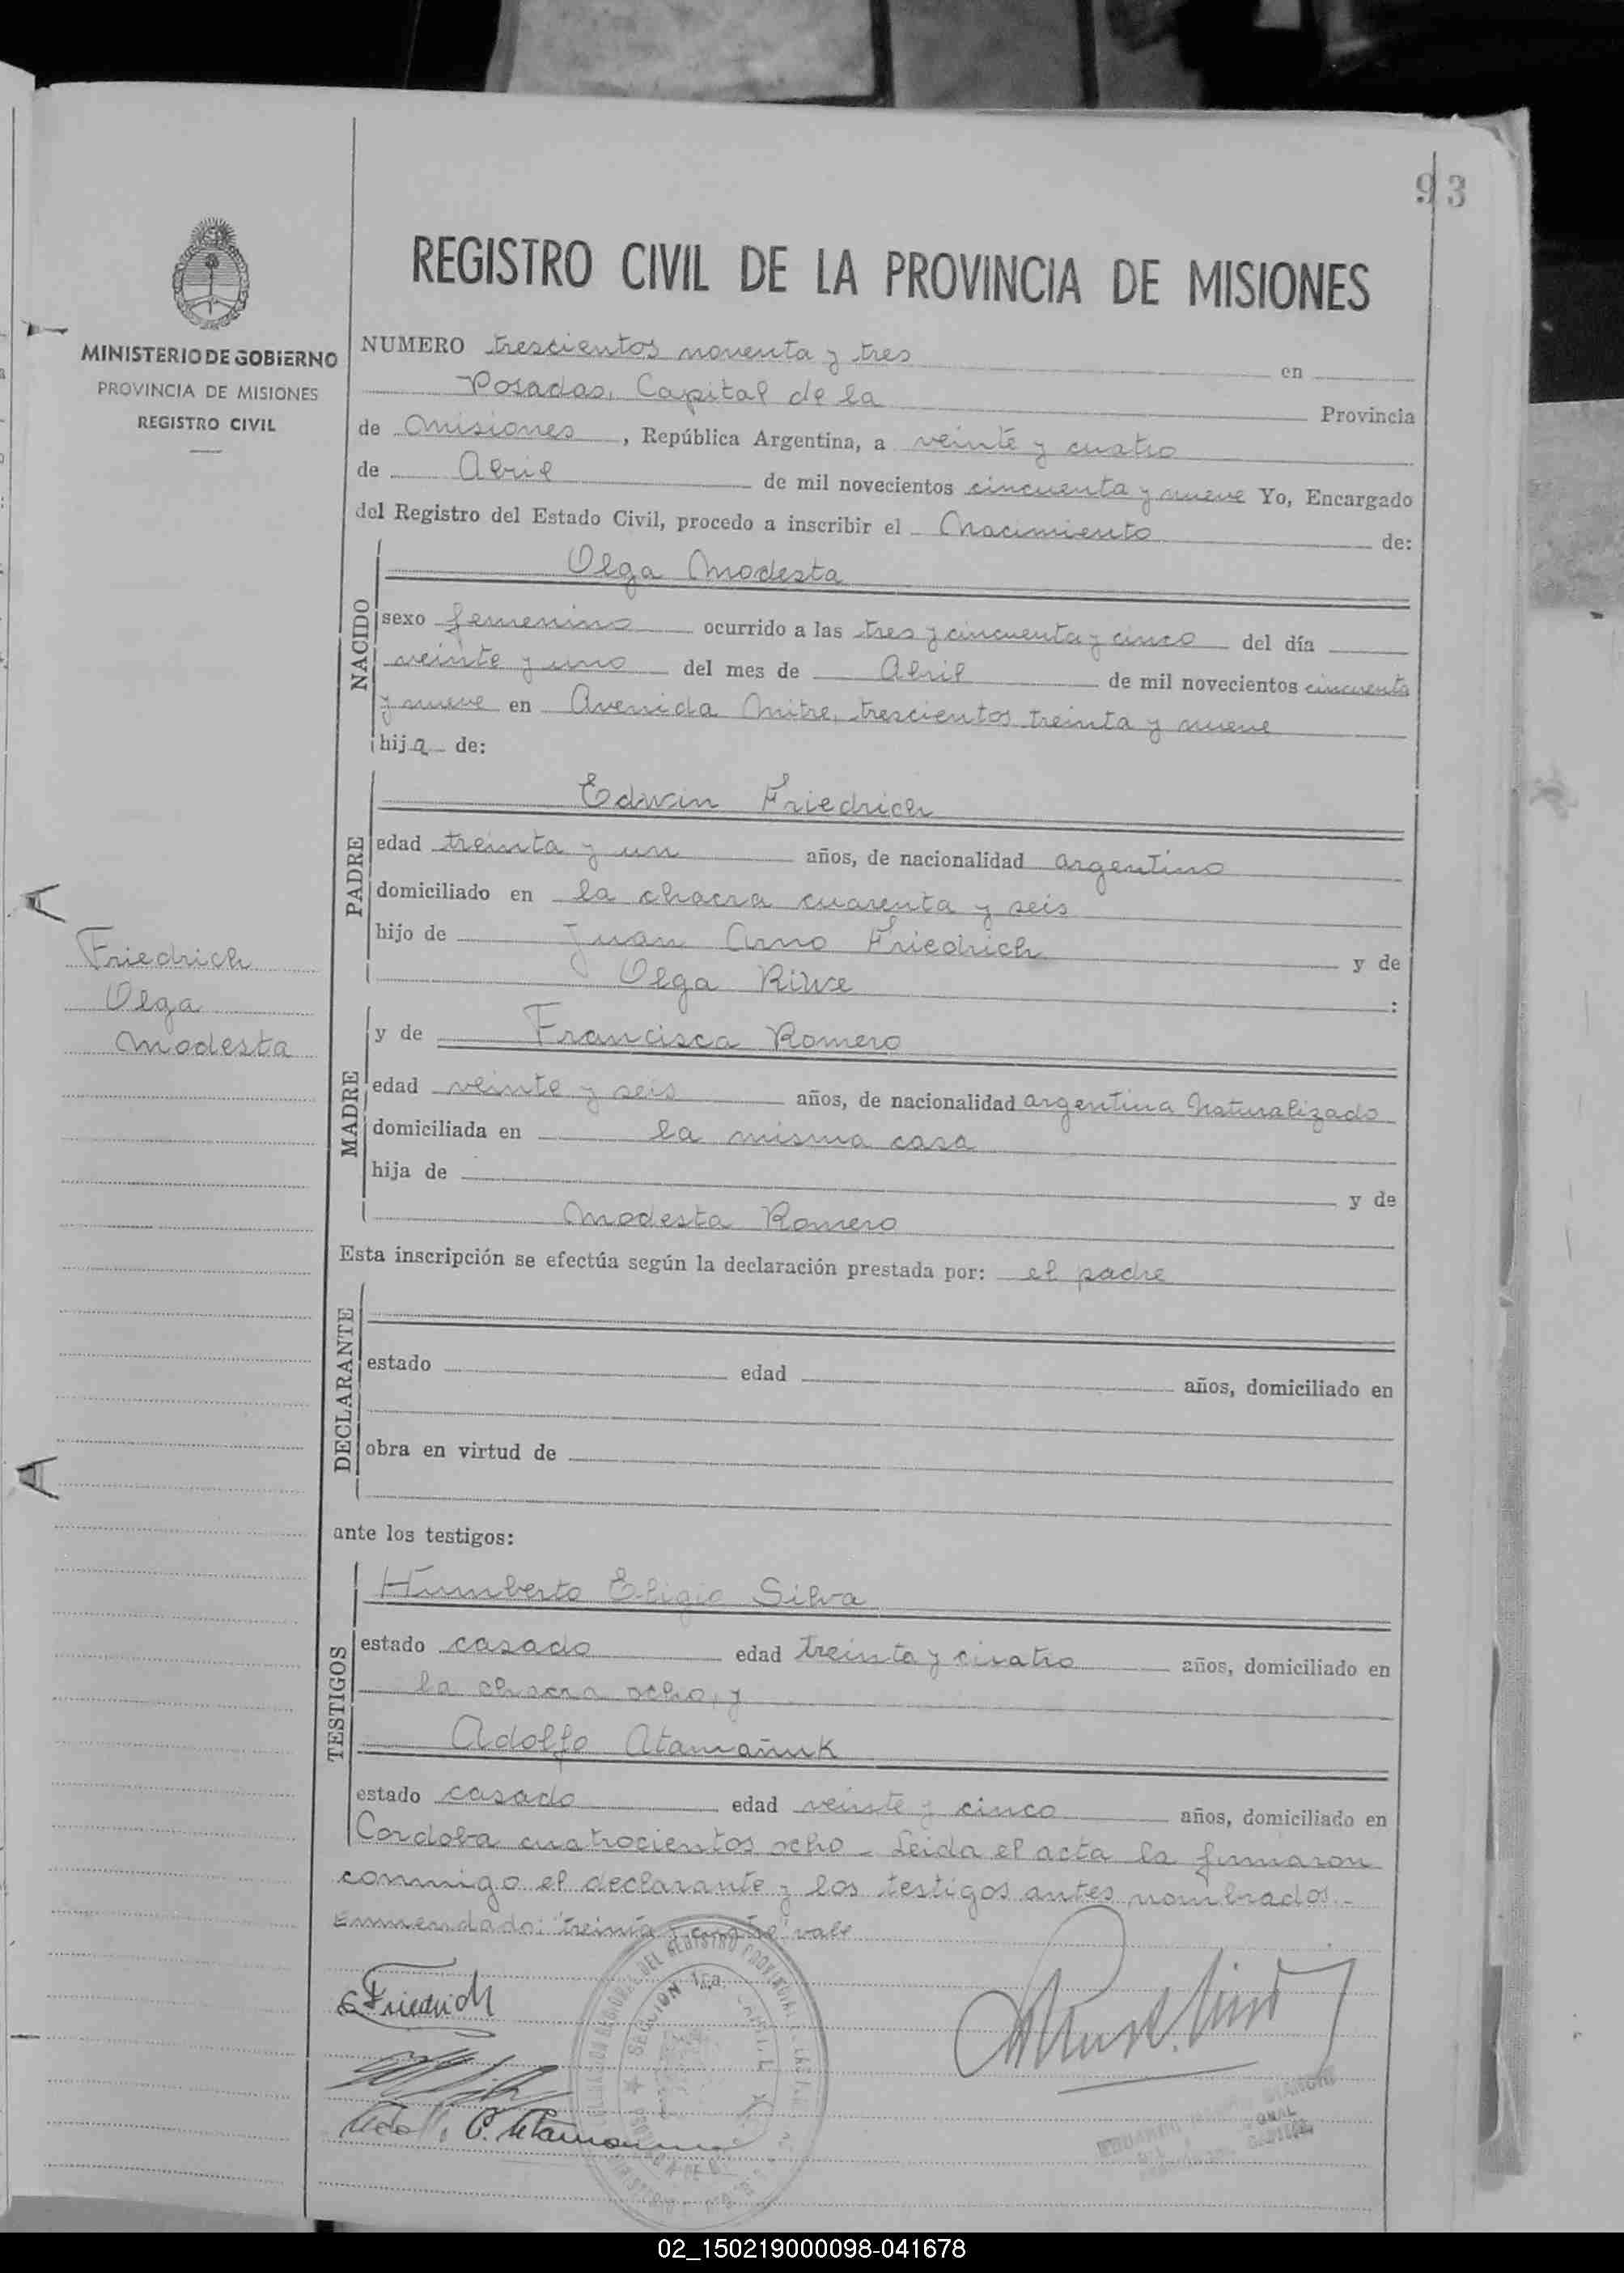 93
REGISTRO CIVIL DE LA PROVINCIA DE MISIONES
MINISTERIO DE GOBIERNO
PROVINCIA DE MISIONES
REGISTRO CIVIL
NUMERO trescientos noventa y tres en
Posadas, Capital de la Provincia
de Misiones, República Argentina, a veinte y cuatro
de Abril de mil novecientos cincuenta y nueve Yo, Encargado
del Registro del Estado Civil, procedo a inscribir el Nacimiento de:
NACIDO
Olga Modesta
sexo femenino ocurrido a las tres y cincuenta y cinco del día
veinte y uno del mes de Abril de mil novecientos cincuenta
y nueve en Avenida Mitre, trescientos treinta y nueve
hija de:
PADRE
Edwin Friedrich
edad treinta y un años, de nacionalidad argentino
domiciliado en la chacra cuarenta y seis
hijo de Juan Arno Friedrich y de
Olga :
Friedrich
Olga
Modesta
MADRE
y de Francisca Romero
edad veinte y seis años, de nacionalidad argentina Naturalizado
domiciliada en la misma casa
hija de y de
Modesta Romero
Esta inscripción se efectúa según la declaración prestada por: el padre
DECLARANTE
estado edad años, domiciliado en
obra en virtud de
ante los testigos:
TESTIGOS
Humberto Eligio Silva
estado casado edad treinta y cuatro años, domiciliado en
la chacra ocho, y
Adolfo Atamañuk
estado casado edad veinte y cinco años, domiciliado en
Cordoba cuatrocientos ocho - Leida el acta la firmaron
conmigo el declarante y los testigos antes nombrados.-
Enmendado: "treinta y cuatro" vale
E Friedrich
SECCION 1ra.
02_150219000098-041678